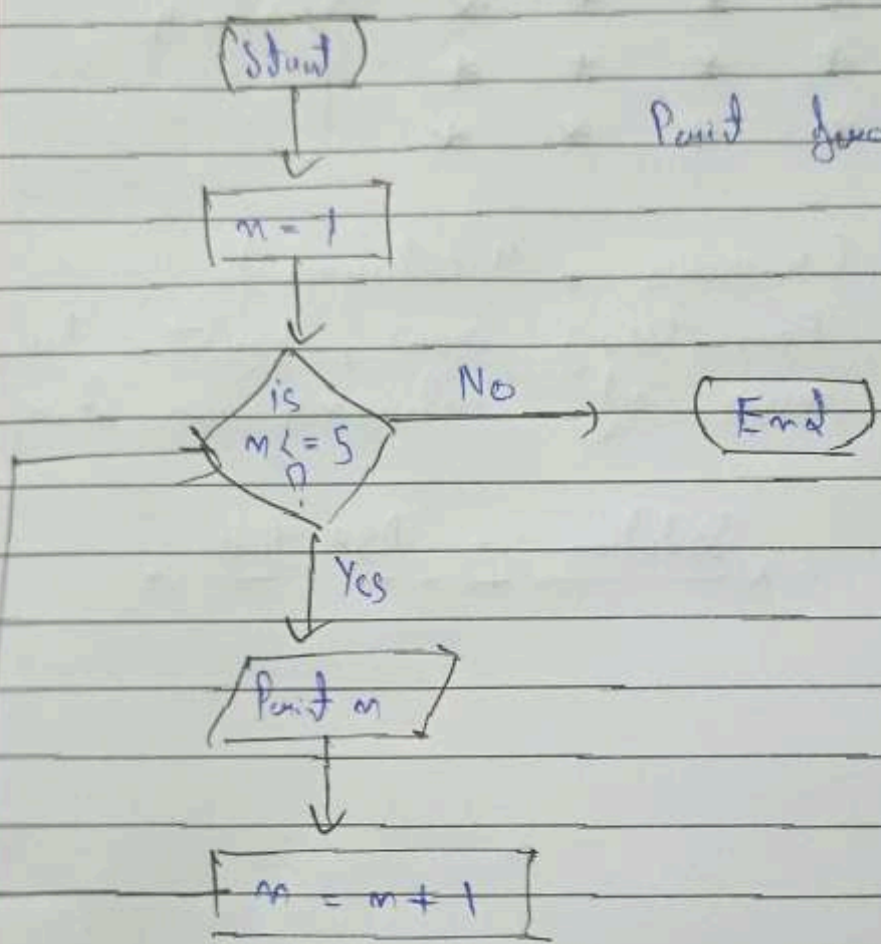 Start
Print
n = 1
is
n <= 5
?
No
End
Yes
Print n
n = n + 1